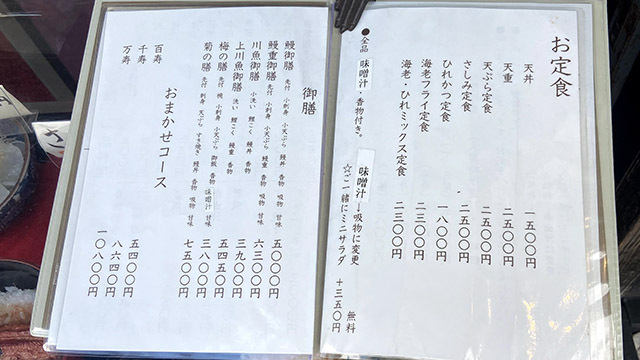 お定食
天丼 一五〇〇円
天重 二五〇〇円
天ぷら定食 二五〇〇円
さしみ定食 二五〇〇円
ひれかつ定食 一八〇〇円
海老フライ定食 二三〇〇円
海老・ひれミックス定食 二三〇〇円
●全品 味噌汁・香物付き。
味噌汁→吸物に変更 無料
☆ご一緒にミニサラダ +三五〇円
御膳
鰻御膳 先付 小刺身 小天ぷら 鰻丼 香物 吸物 甘味 五〇〇〇円
鰻重御膳 先付 小刺身 鰻重 香物 吸物 甘味 六三〇〇円
川魚御膳 小洗い 鯉こく 鰻丼 香物 三九〇〇円
上川魚御膳 洗い 鯉こく 鰻重 香物 五四五〇円
梅の膳 先付 椀 小刺身 小天ぷら 御飯 香物 味噌汁 甘味 三八〇〇円
菊の膳 先付 刺身 天ぷら すき焼き 鰻丼 香物 吸物 甘味 七五〇〇円
おまかせコース
百寿 五四〇〇円
千寿 八六四〇円
万寿 一〇八〇〇円